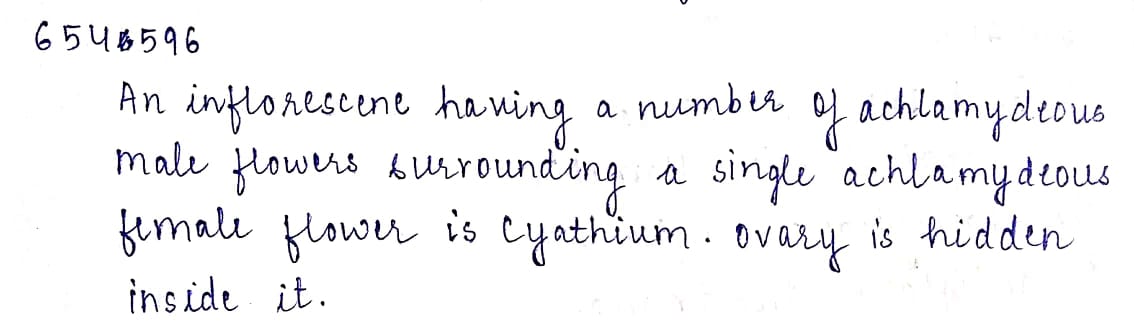 6546596
An inflorescene having a number of achlamydeous
male flowers surrounding a single achlamydeous
female flower is Cyathium. Ovary is hidden
inside it.